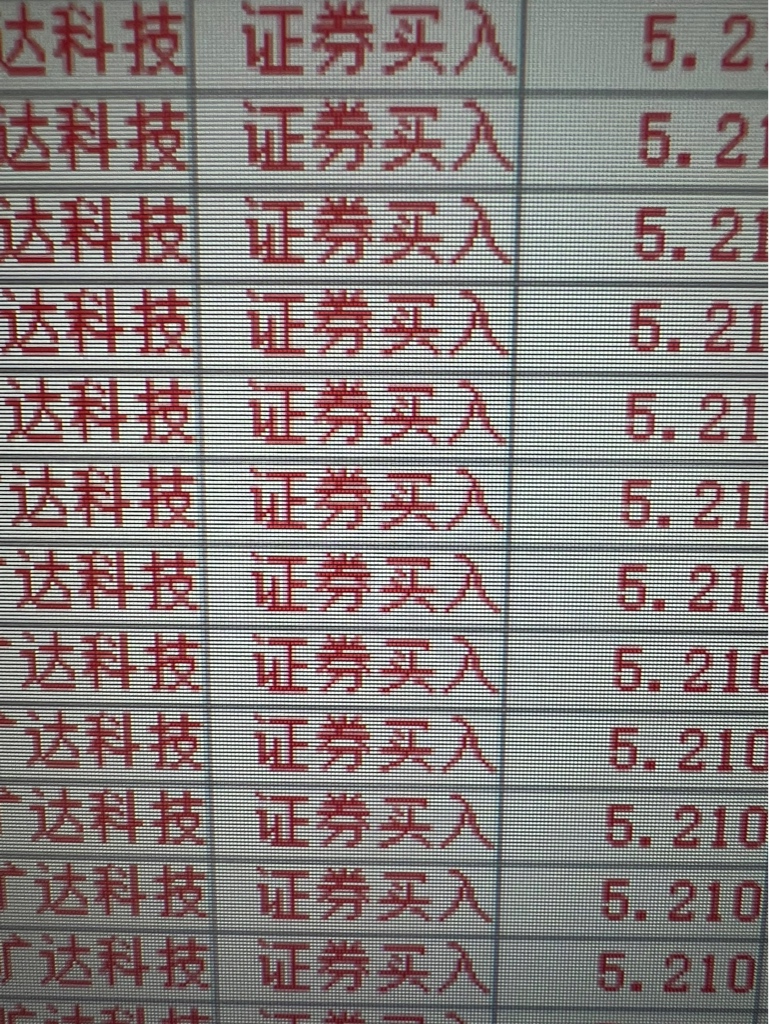 达科技 证券买入 5.2
达科技 证券买入 5.21
达科技 证券买入 5.21
达科技 证券买入 5.21
达科技 证券买入 5.21
达科技 证券买入 5.21
达科技 证券买入 5.210
达科技 证券买入 5.210
达科技 证券买入 5.210
达科技 证券买入 5.210
达科技 证券买入 5.210
达科技 证券买入 5.210